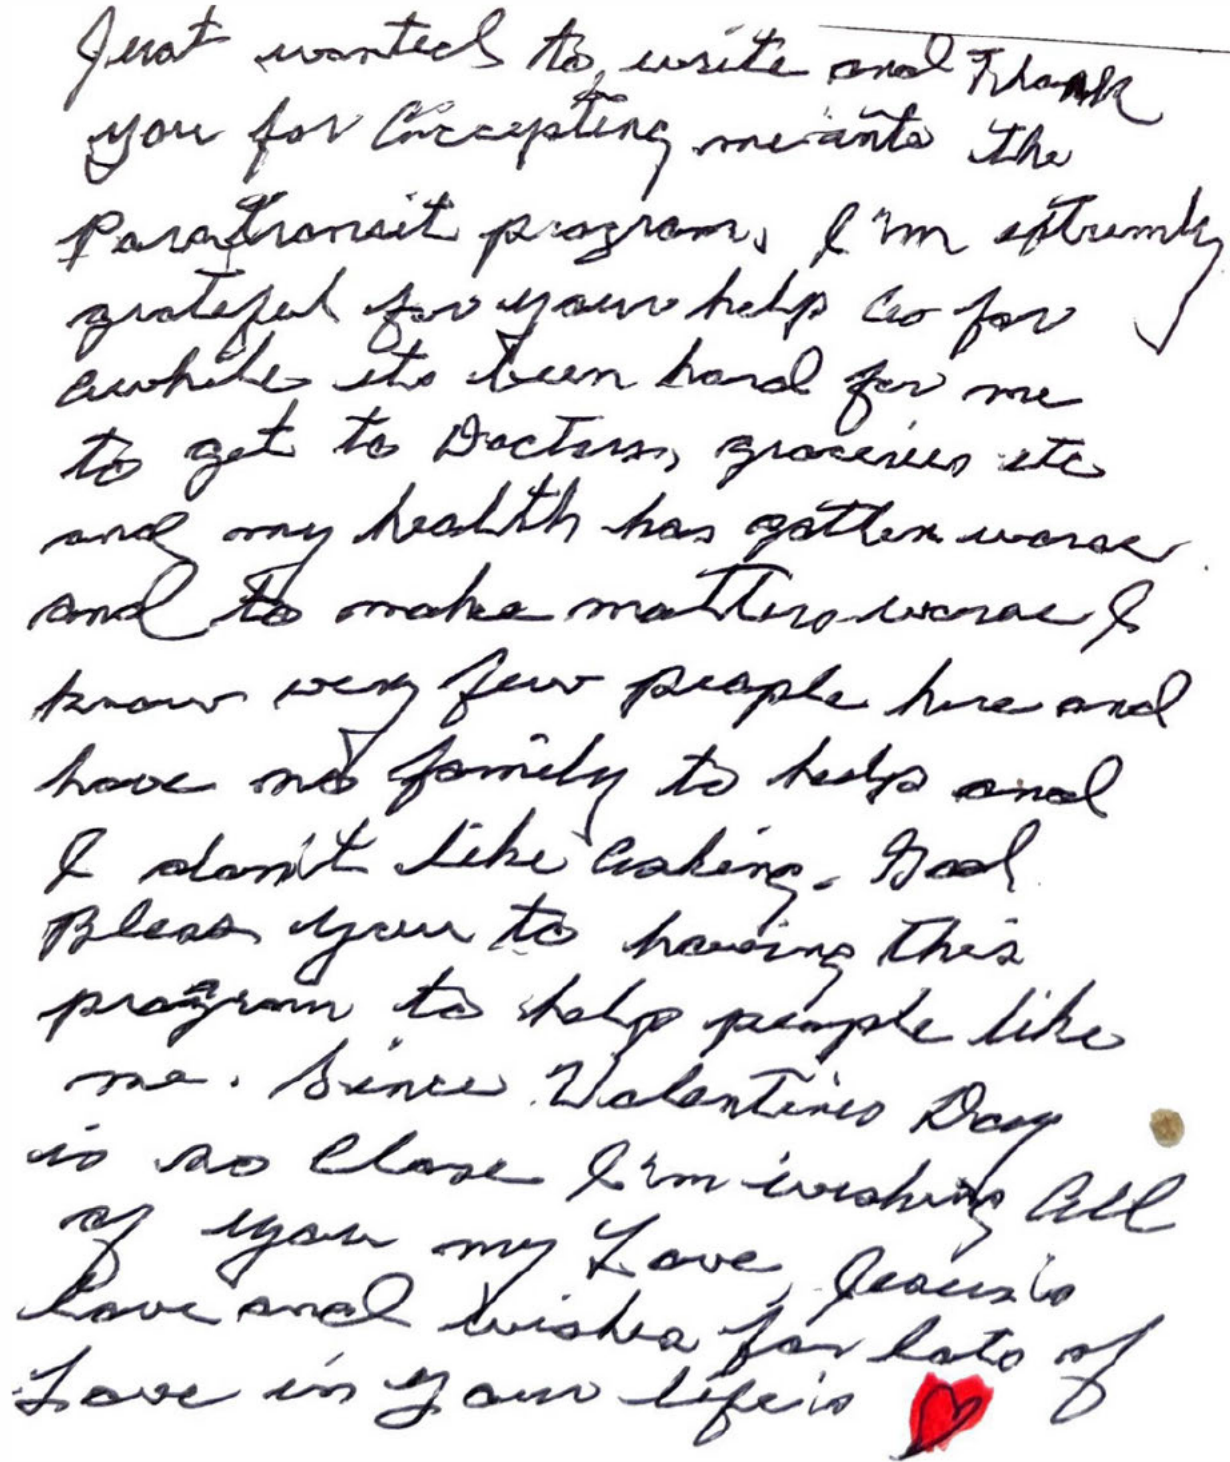 Just wanted to write and Thank
you for Accepting me into the
Paratransit program, I'm extremly
grateful for your help as for
awhile its been hard for me
to get to Doctors, groceries etc
and my health has gotten worse
and to make matters worse I
know very few people here and
have no family to help and
I don't like Asking. God
Bless you to having this
program to help people like
me. Since Valentines Day
is so Close I'm wishing All
of you my Love, Jesus's
Love and wishes for lots of
Love in your life's